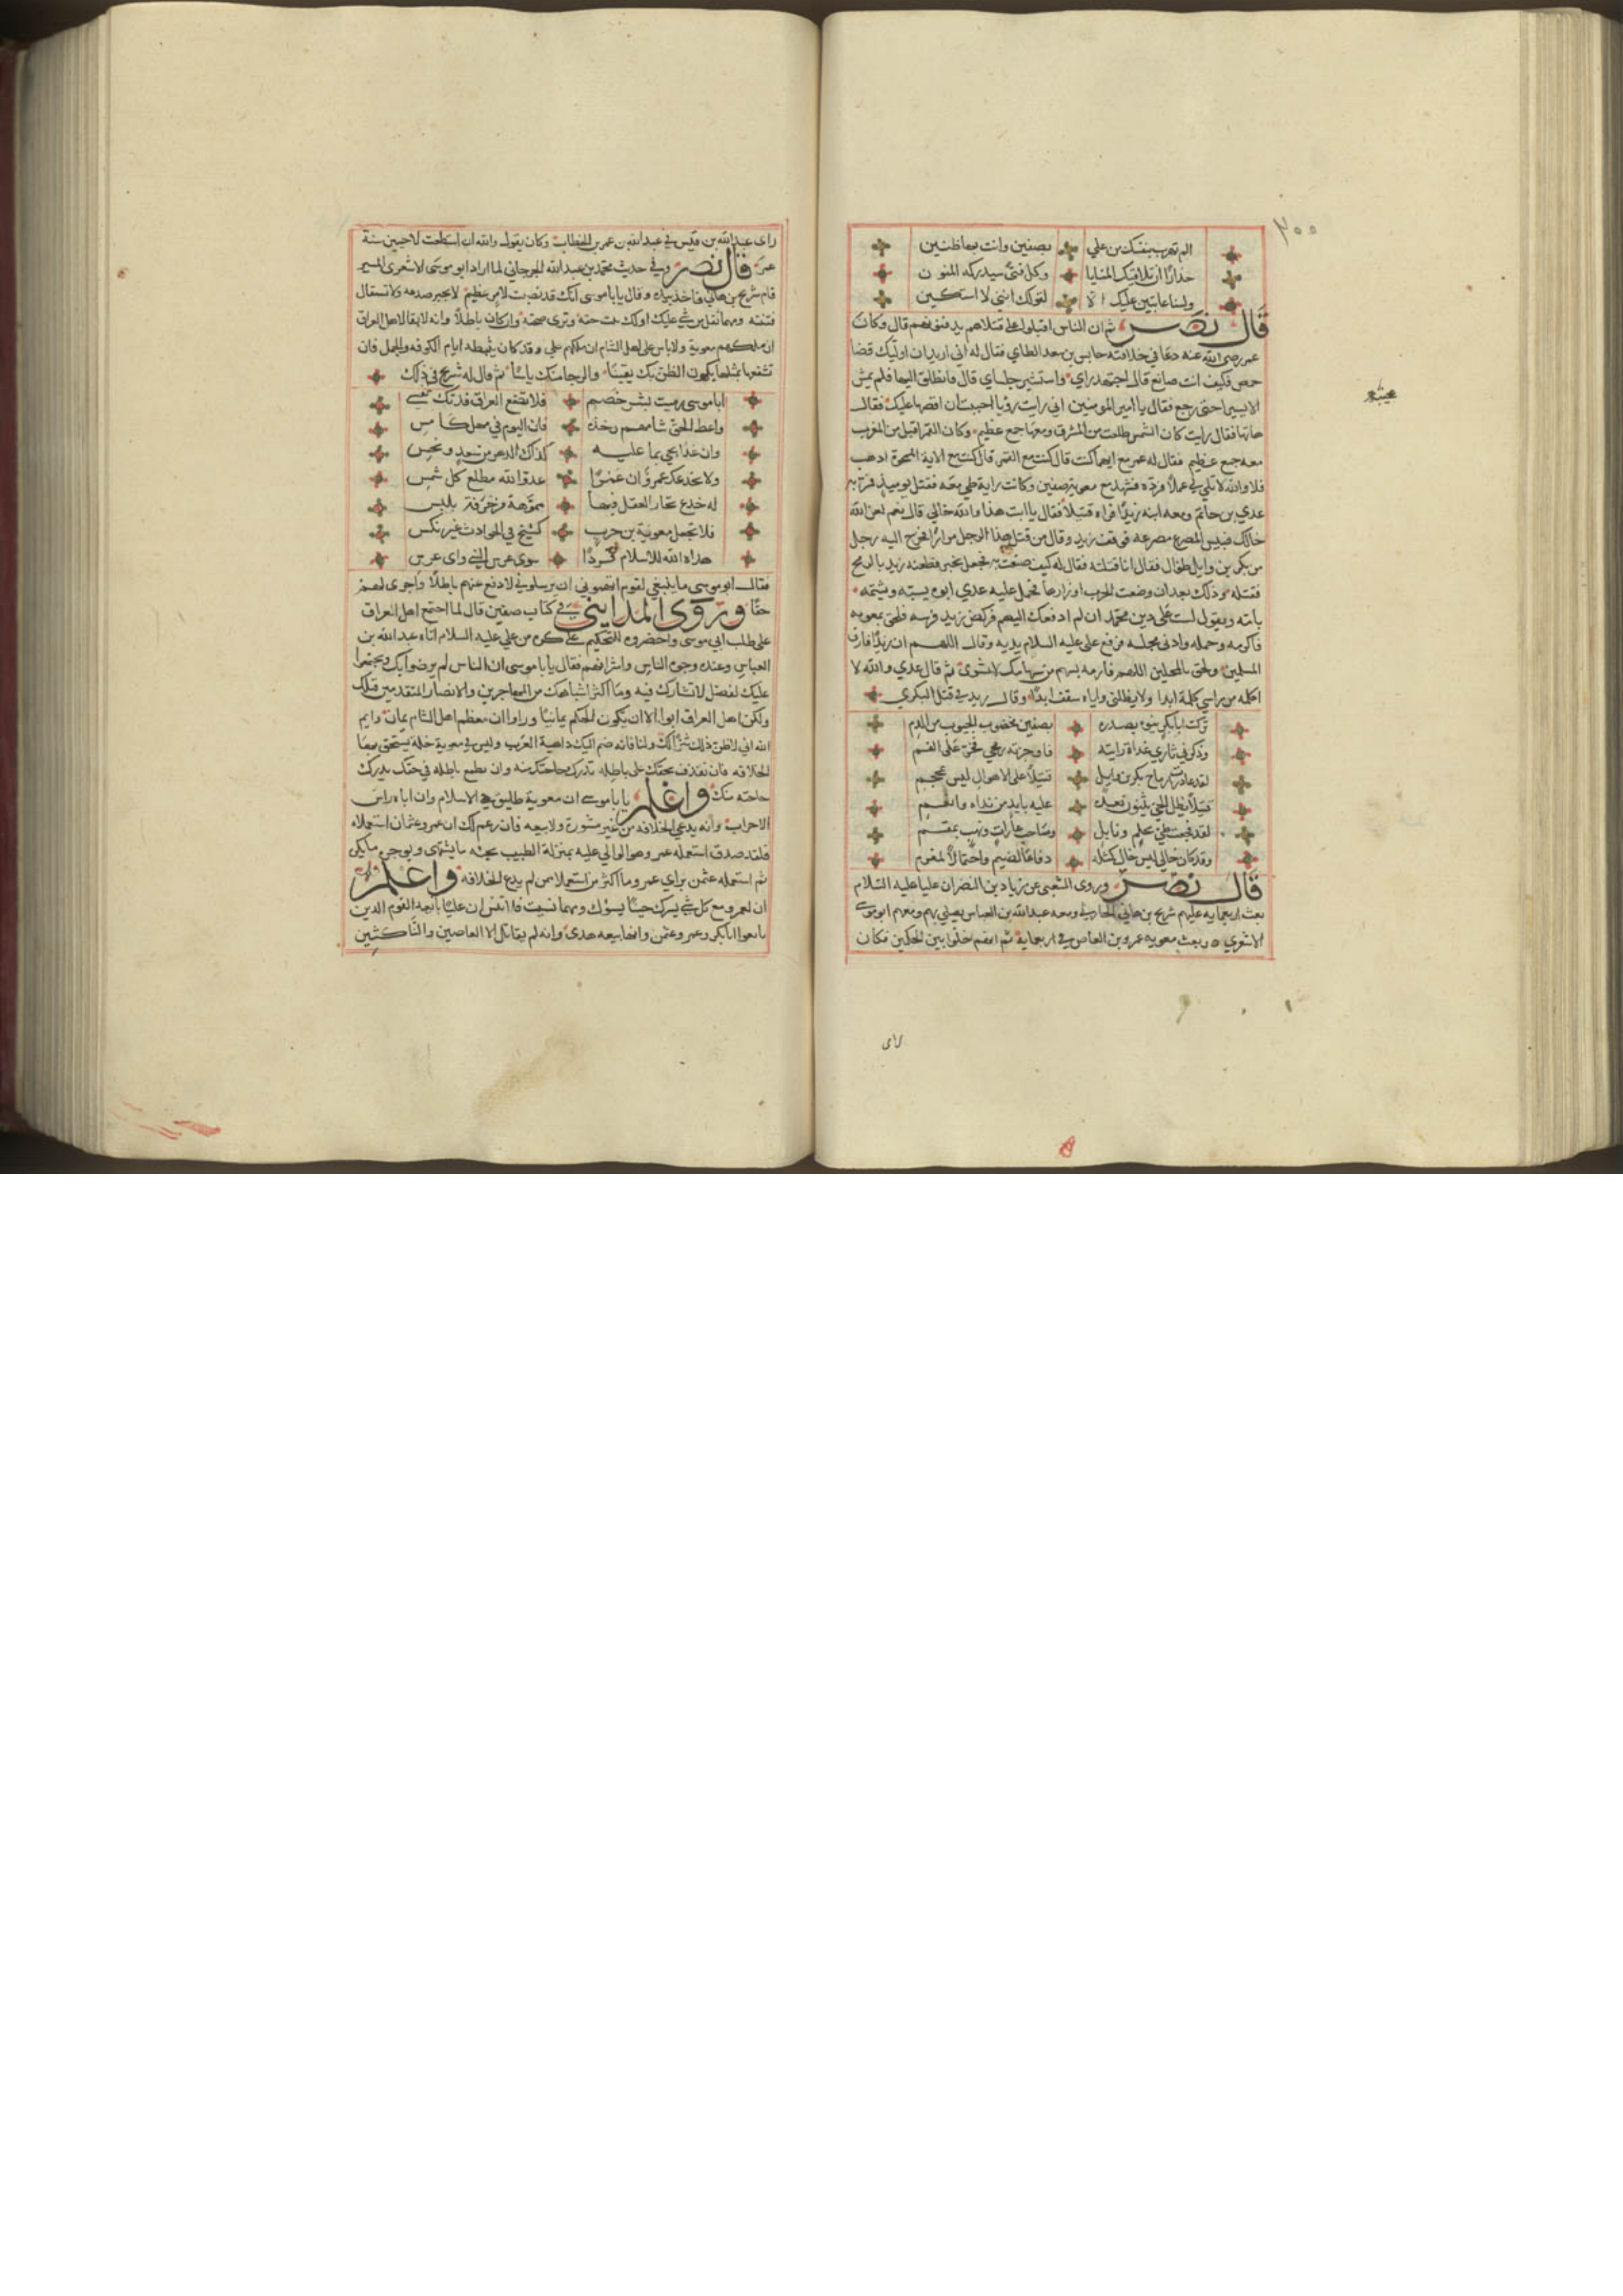 ٣٠٠
الم تهرب بنفسك من علي بصفين وانت بها ظنين
حذارا ان تلاقيك المنايا وكل فتى سيدركه المنون
ولسنا عايبين عليك الا لقولك انني لا استكين
قال نصر ثم ان الناس اقبلوا على قتلاهم يدفنونهم قال وكان
عمر رضى الله عنه دعا في خلافته حابس بن سعد الطاي فقال له اني اريد ان اوليك قضا
حمص فكيف انت صانع قال اجتهد راي واستشير جلساي قال فانطلق اليها فلم يمش
الا يسيرا حتى رجع فقال يا امير المومنين اني رايت رؤيا احببت ان اقصها عليك فقال
هاتها فقال رايت كان الشمس طلعت من المشرق ومعها جمع عظيم وكان القمر اقبل من المغرب
معه جمع عظيم فقال له عمر مع ايهما كنت قال كنت مع القمر قال كنت مع الاية الممحوة اذهب
فلا والله لا تلي لي عملا فرده فشهد مع معوية صفين وكانت راية طي معه فقتل يوميذ فمر به
عدي بن حاتم ومعه ابنه زيد فراه قتيلا فقال يا ابت هذا والله خالي قال نعم لعن الله
خالك فبيس المصرع مصرعه فوقف زيد وقال من قتل هذا الرجل مرارا فخرج اليه رجل
من بكر بن وايل طوال فقال انا قتلته فقال له كيف صنعت به فجعل يخبره فطعنه زيد بالرمح
فقتله وذلك بعد ان وضعت الحرب اوزارها فحمل عليه عدي ابوه يسبه ويشتمه
بامه ويقول لست على دين محمد ان لم ادفعك اليهم فركض زيد فرسه فلحق بمعوية
فاكرمه وحمله وادنى مجلسه فرفع علي عليه السلام يديه وقال اللهم ان زيدا فارق
المسلمين ولحق بالمحلين اللهم فارمه بسهم من سهامك لا يشوى ثم قال عدي والله لا
اكلمه من راسي كلمة ابدا ولا يظلني واياه سقف ابدا وقال زيد في قتل البكري
تركت ابا بكر ينوء بصدره بصفين مخضوب الجيوب من الدم
وذكرني ثاري غداة رايته فاوجرته رمحي فخر على الفم
لقد غادرت رماح بكر بن وايل قتيلا على الاهوال ليس بمحجم
قتيلا يظل الحي يثنون بعده عليه بايد من نداه وانعم
لقد فجعت طي بحلم ونايل وصاحب غارات ونهب مقسم
وقد كان خالي ليس خال كمثله دفاعا لضيم واحتمالا لمغرم
قال نصر وروى الشعبي عن زياد بن النضر ان عليا عليه السلام
بعث اربعماية عليهم شريح بن هاني الحارثي ومعه عبد الله بن العباس يصلي بهم ومعهم ابو موسى
الاشعري وبعث معوية عمرو بن العاص في اربعماية ثم انهم خلوا بين الحكمين فكان
راى
راى عبد الله بن قيس في عبد الله بن عمر بن الخطاب وكان يقول والله ان استطعت لاحيين سنة
عمر قال نصر وفي حديث محمد بن عبد الله الجرجاني لما اراد ابو موسى الاشعري المسير
قام شريح بن هاني فاخذ بيده وقال يابا موسى انك قد نصبت لامر عظيم لا يجبر صدعه ولا تستقال
فتنته ومهما تقل من شي عليك او لك يثبت حقه وترى صحته وان كان باطلا وانه لا بقا لاهل العراق
ان ملكهم معوية ولا باس على اهل الشام ان ملكهم علي وقد كان تثبيطه ايام الكوفه والجمل فان
تشفعها بمثلها يكون الظن بك يقينا والرجا منك ياسا ثم قال له شريح في ذلك
ابا موسى رميت بشر خصم فلا تضع العراق فدتك نفسي
واعط الحق شامهم وخذه فان اليوم في مهل كامس
وان غدا يجي بما عليه كذاك الدهر من سعد ونحس
ولا يخدعك عمرو ان عمروا عدو الله مطلع كل شمس
له خدع يحار العقل فيها مموهة مزخرفة بلبس
فلا تجعل معوية بن حرب كشيخ في الحوادث غير نكس
هداه الله للاسلام فردا سوى عرس النبي واي عرس
فقال ابو موسى ما ينبغي لقوم اتهموني ان يرسلوني لادفع عنهم باطلا واجري لهم
حقا وروى المدايني في كتاب صفين قال لما اجتمع اهل العراق
على طلب ابي موسى واحضروه للتحكيم على كره من علي عليه السلام اتاه عبد الله بن
العباس وعنده وجوه الناس واشرافهم فقال يابا موسى ان الناس لم يرضوا بك ويجتمعوا
عليك لفضل لا تشارك فيه وما اكثر اشباهك من المهاجرين والانصار المتقدمين قبلك
ولكن اهل العراق ابوا الا ان يكون الحكم يمانيا وراوا ان معظم اهل الشام يمان وايم
الله اني لاظن ذلك شرا لك ولنا فانه ضم اليك داهية العرب وليس في معوية خلة يستحق بها
الخلافه فان تقذف بحقك على باطله تدرك حاجتك منه وان يطمع باطله في حقك يدرك
حاجته منك واعلم يابا موسى ان معوية طليق الاسلام وان اباه راس
الاحزاب وانه يدعي الخلافه من غير مشورة ولا بيعه فان زعم لك ان عمر وعثمان استعملاه
فلقد صدق استعمله عمر وهو الوالي عليه بمنزلة الطبيب يحميه ما يشتهي ويوجره ما يكره
ثم استعمله عثمن براي عمر وما اكثر من استعملا ممن لم يدع الخلافه واعلم
ان لعمرو مع كل شي يسرك خبيا يسؤك ومهما نسيت فلا تنس ان عليا بايعه القوم الذين
بايعوا ابا بكر وعمر وعثمن وانها بيعه هدى وانه لم يقاتل الا العاصين والناكثين